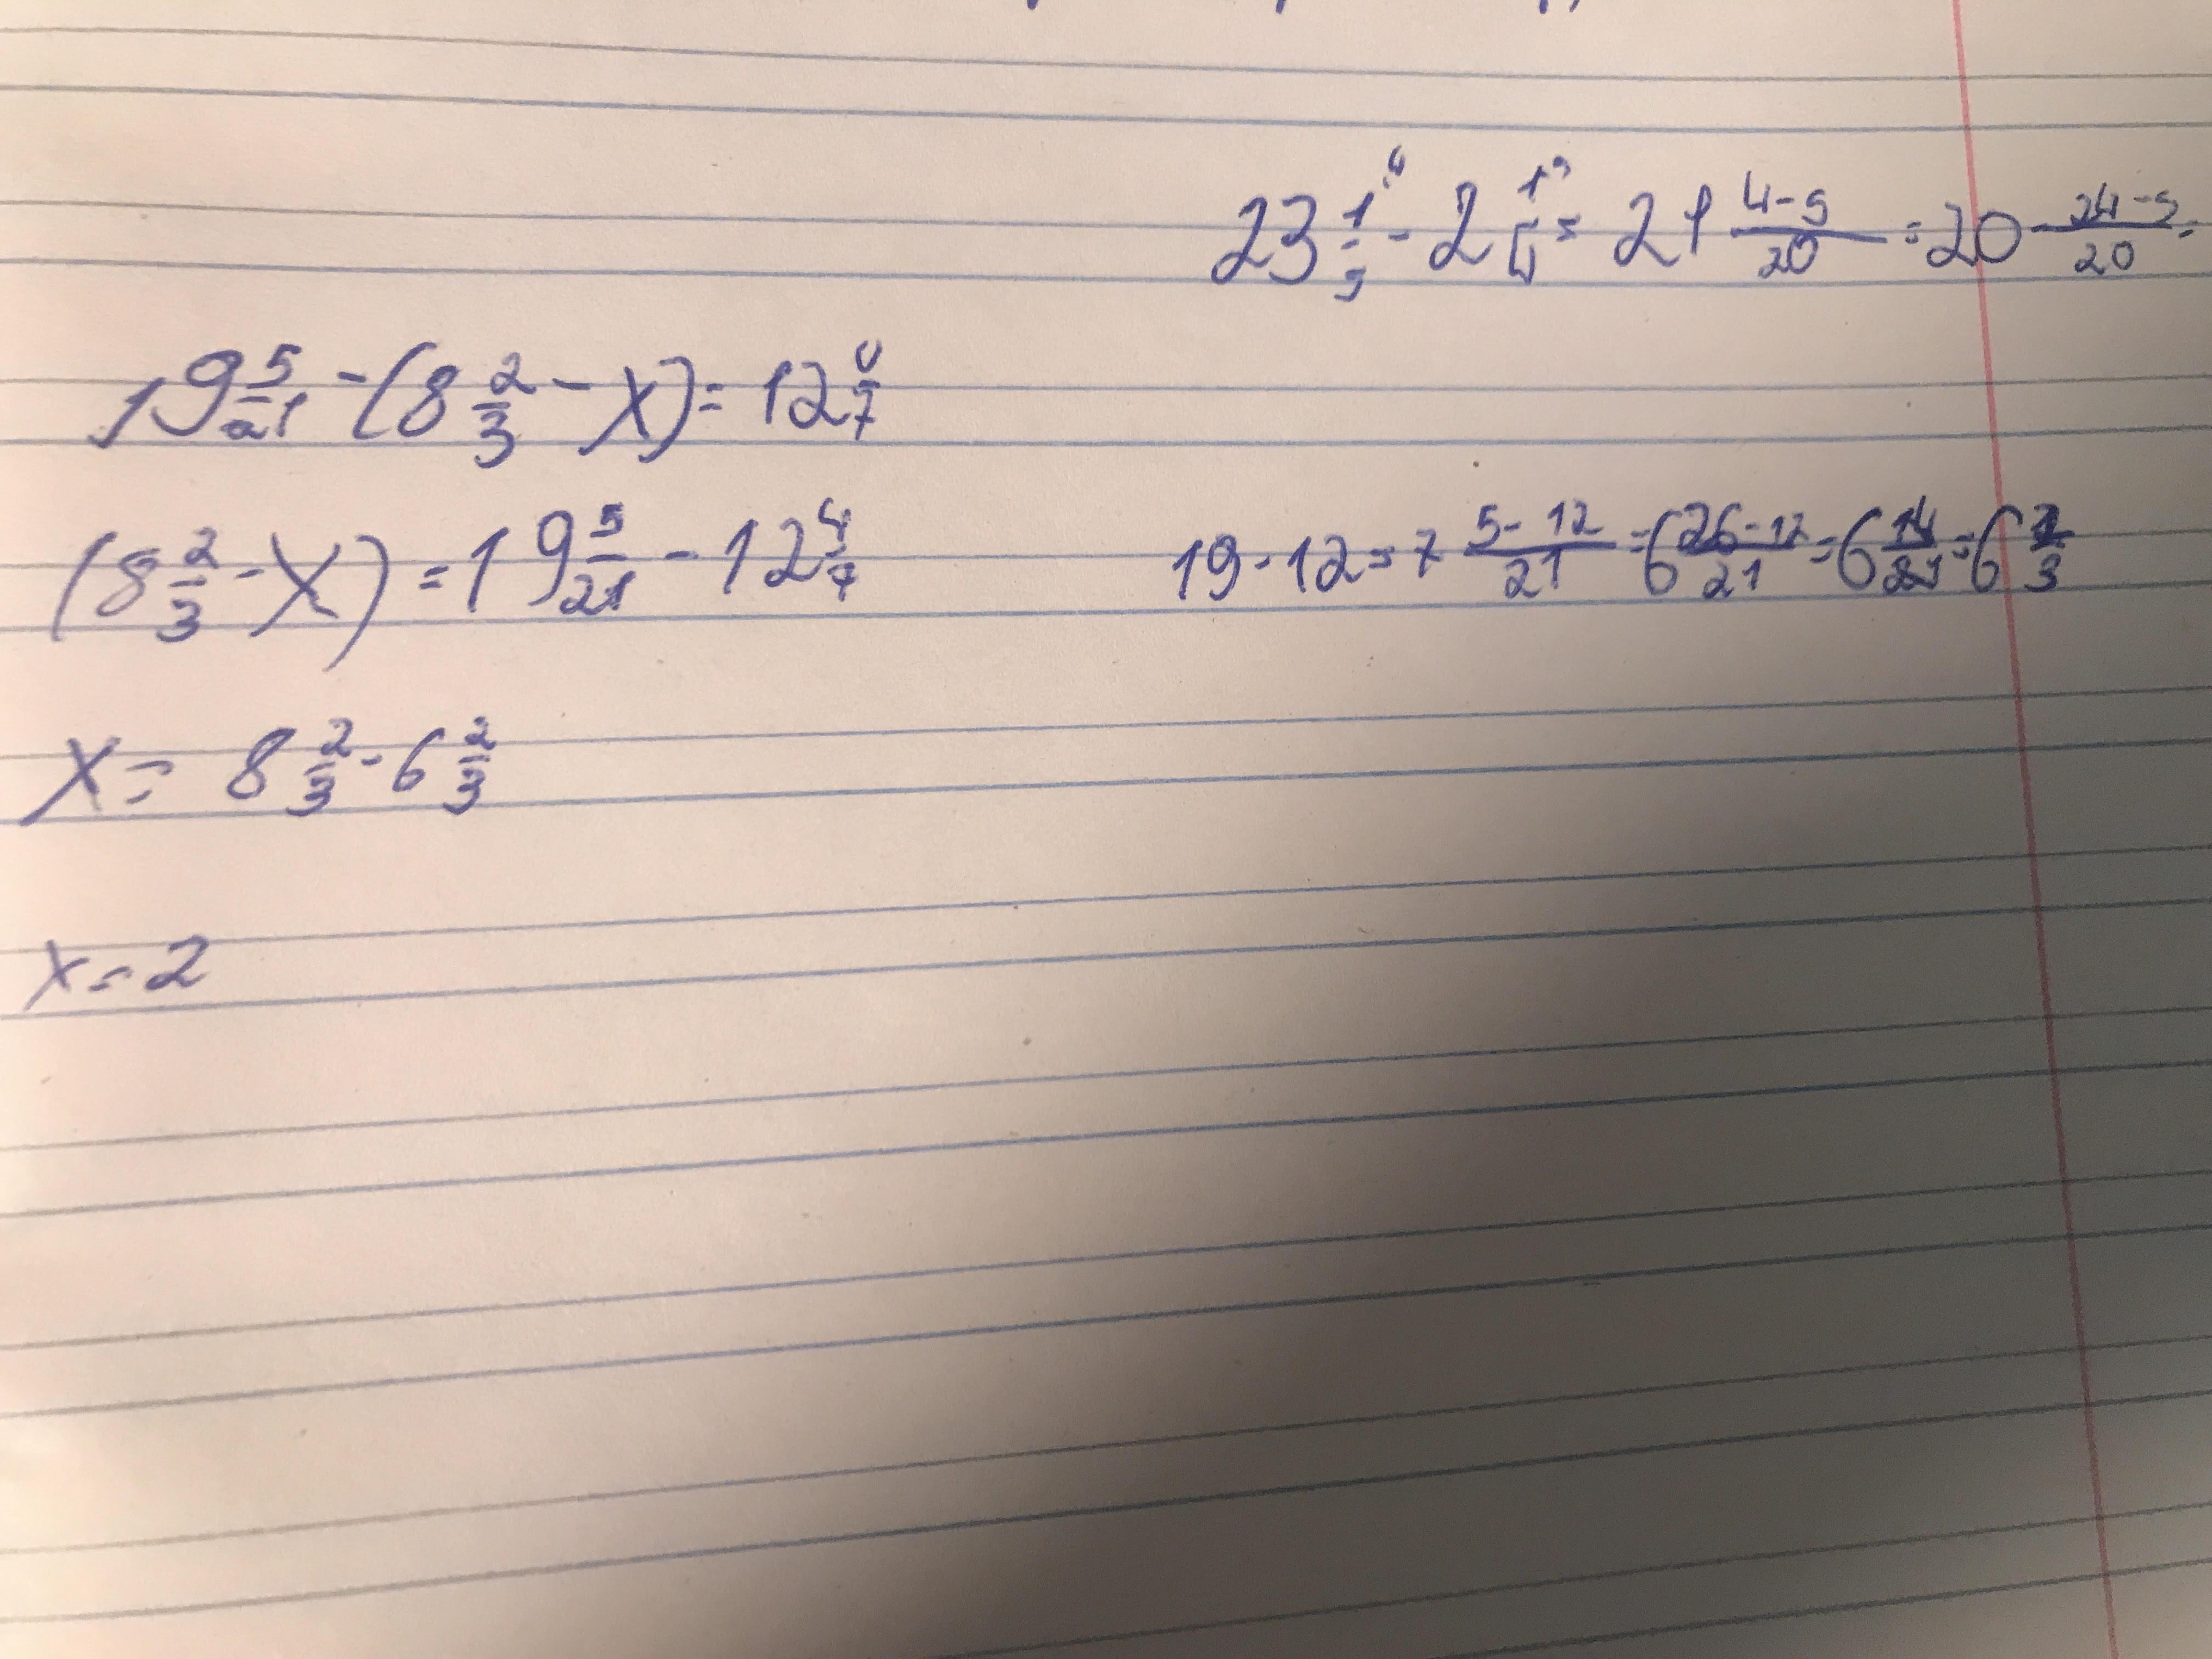 23 1/5 - 2 1/4 = 21 (4-5)/20 = 20 (24-5)/20 =
19 5/21 - (8 2/3 - x) = 12 4/7
(8 2/3 - x) = 19 5/21 - 12 4/7
19 - 12 = 7 (5-12)/21 = 6 (26-12)/21 = 6 14/21 = 6 2/3
x = 8 2/3 - 6 2/3
x = 2